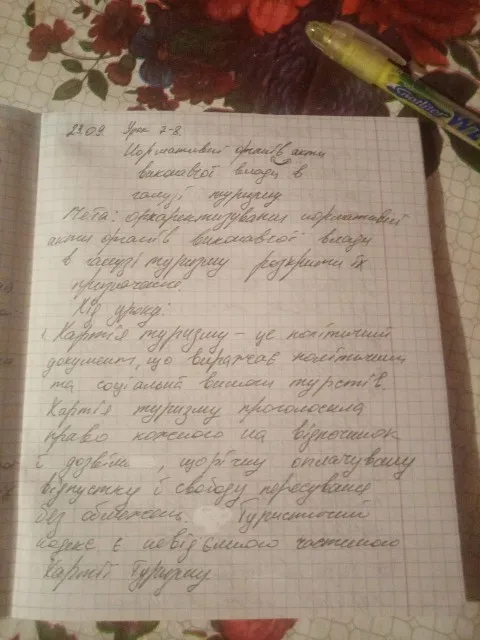 29.09 Урок 7-8.
Нормативні органів акти
виконавчої влади в
галузі туризму
Мета: охарактизувати нормативні
акти органів виконавчої влади
в галузі туризму розкрити їх
призначення
Хід уроку:
Хартія туризму - це політичний
документ, що виражає політичний
та соціальний вимоги турстів.
Хартія туризму проголосила
право кожного на відпочинок
і дозвілля, щорічну оплачувану
відпустку й свободу пересування
без обмежень Туристичний
кодекс є невід'ємною частиною
Хартії Туризму